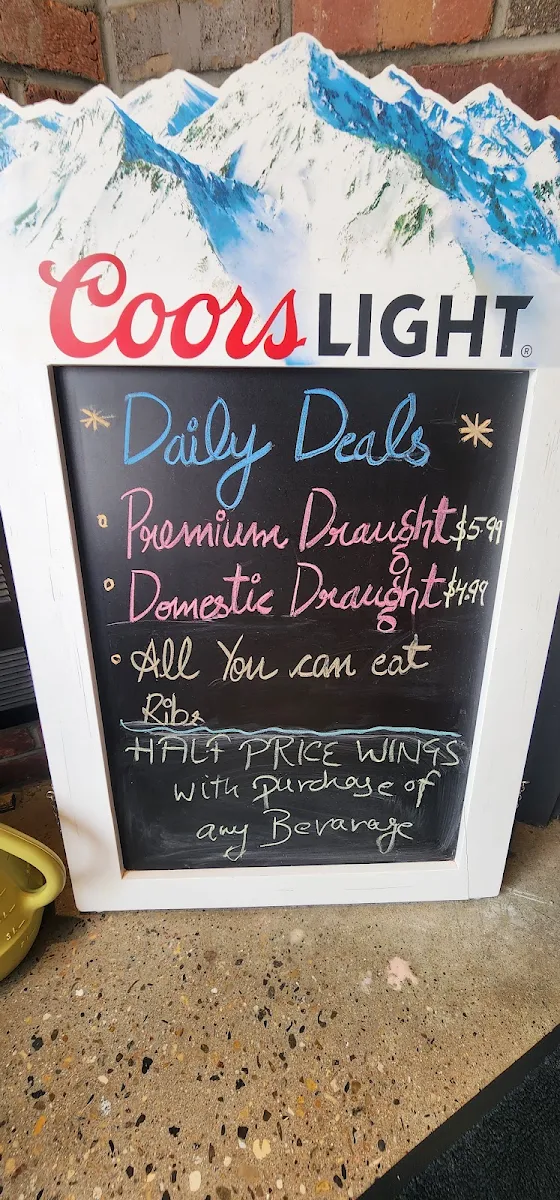 Coors LIGHT®
Daily Deals
Premium Draught $5.99
Domestic Draught $4.99
All You can eat
Ribs
HALF PRICE WINGS
with purchase of
any Bevarage